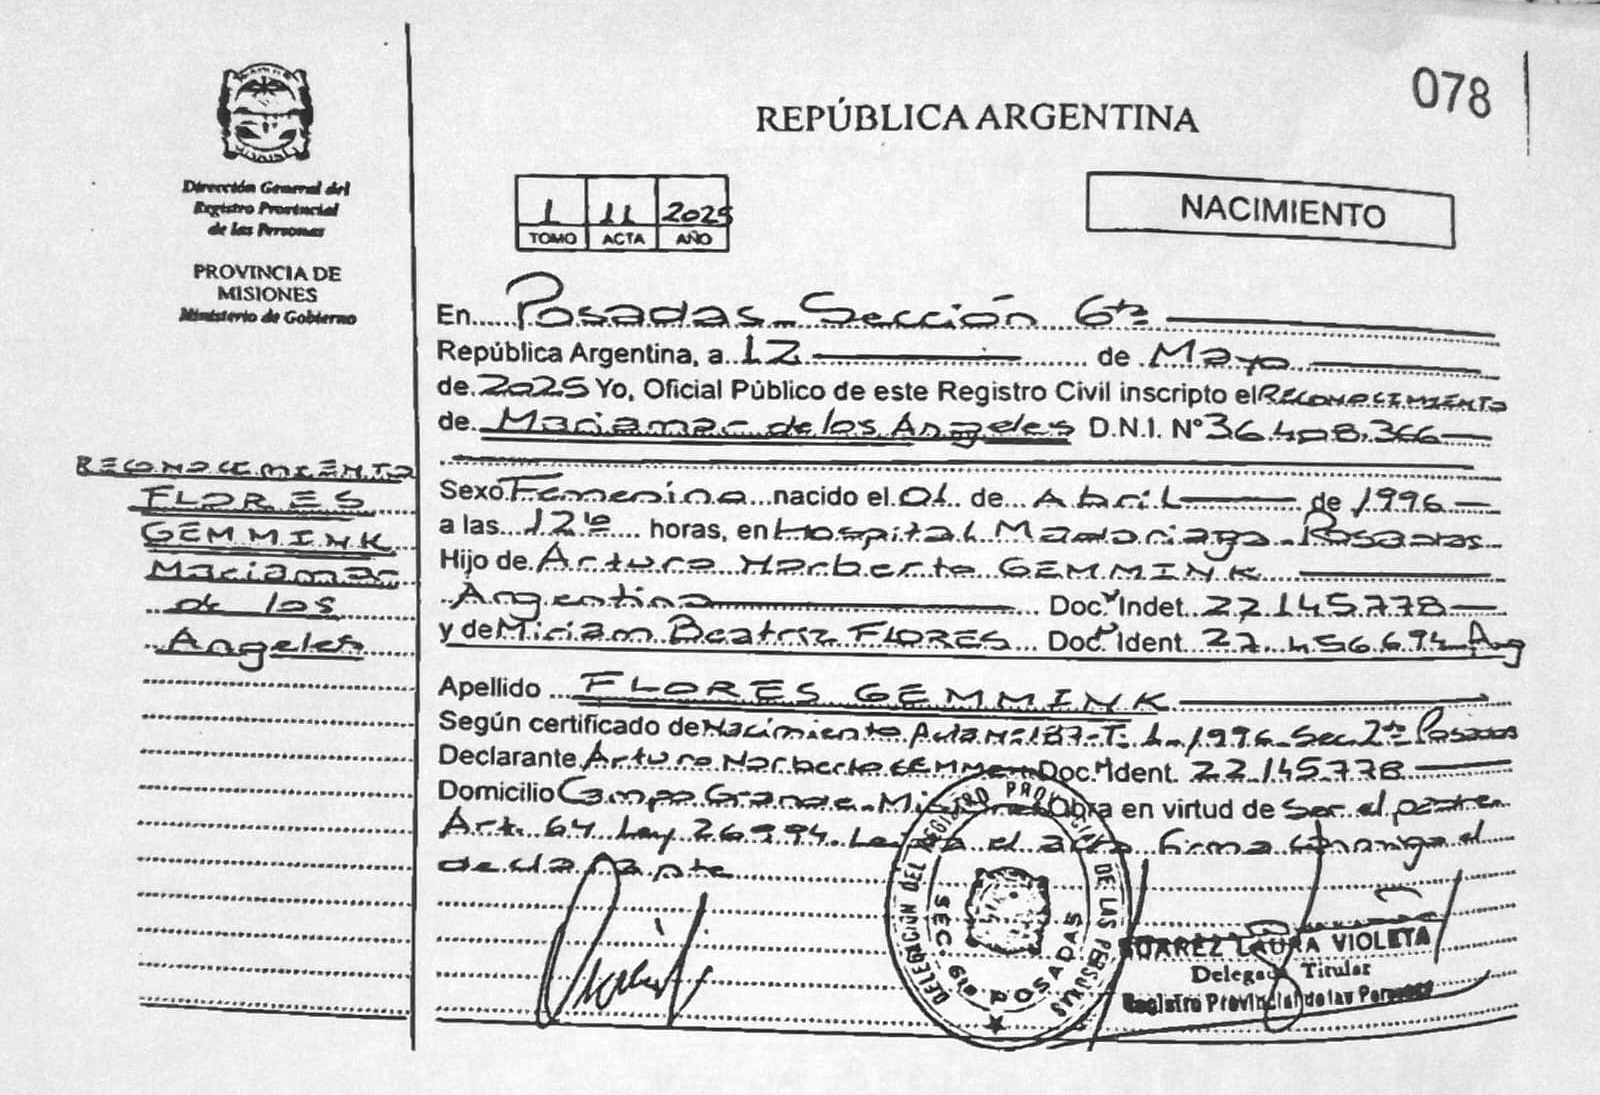 078
REPÚBLICA ARGENTINA
Dirección General del
Registro Provincial
de las Personas
PROVINCIA DE
MISIONES
Ministerio de Gobierno
1 11 2025
TOMO ACTA AÑO
NACIMIENTO
RECONOCIMIENTO
FLORES
GEMMINK
Mariamar
de los
Angeles
En Posadas - Sección 6ta
República Argentina, a 12 de Mayo
de 2025 Yo, Oficial Público de este Registro Civil inscripto el RECONOCIMIENTO
de Mariamar de los Angeles D.N.I. N° 36.408.366
Sexo Femenino nacido el 01 de Abril de 1996
a las 12 horas, en Hospital Madariaga - Posadas
Hijo de Arturo Norberto GEMMINK
Argentino Doc. Indet. 22.145.778
y de Miriam Beatriz FLORES Doc. Ident. 27.456.694 Arg
Apellido FLORES GEMMINK
Según certificado de Nacimiento Acta N° 187 - T. 1 - 1996 - Sec. 2da Posadas
Declarante Arturo Norberto GEMMINK Doc. Ident. 22.145.778
Domicilio Campo Grande - Misiones Obra en virtud de Ser el padre
Art. 64 Ley 26.994. Leída el acta firma conmigo el
declarante
DELEGACIÓN DEL REGISTRO PROVINCIAL DE LAS PERSONAS
SEC. 6ta POSADAS
SUAREZ LAURA VIOLETA
Delegada Titular
Registro Provincial de las Personas